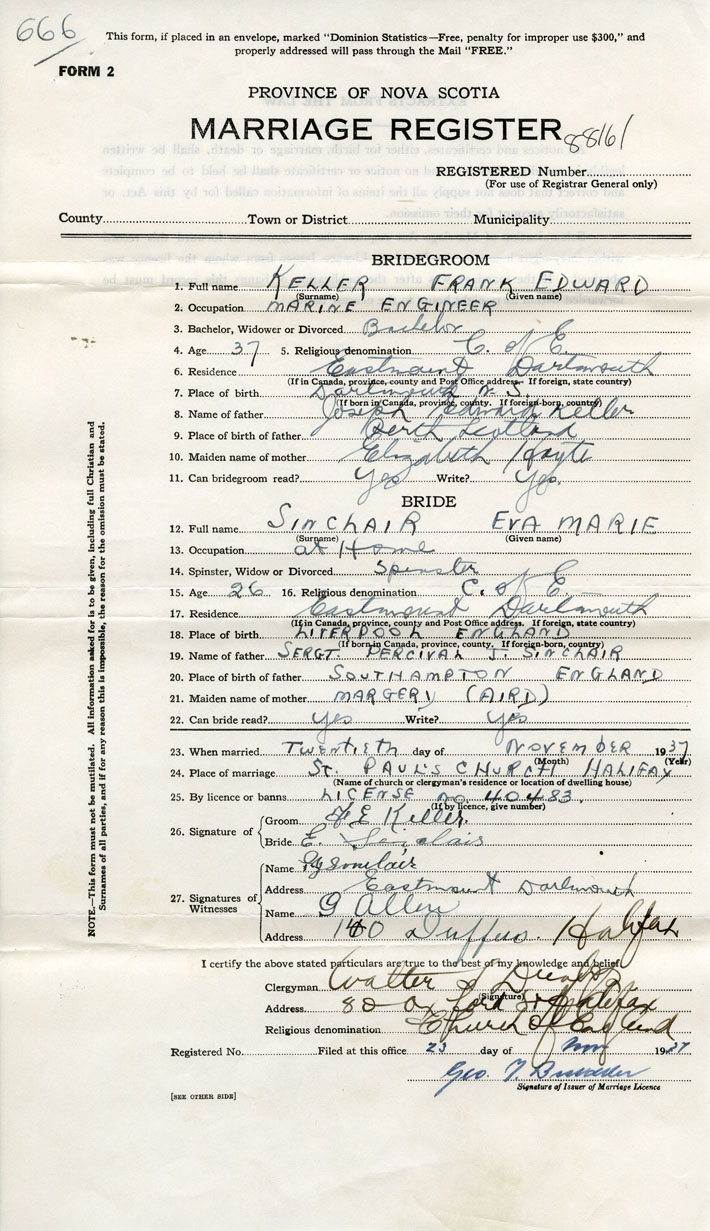 666
This form, if placed in an envelope, marked "Dominion Statistics—Free, penalty for improper use $300," and
properly addressed will pass through the Mail "FREE."
FORM 2
PROVINCE OF NOVA SCOTIA
MARRIAGE REGISTER
88161
REGISTERED Number
(For use of Registrar General only)
County Town or District Municipality
BRIDEGROOM
1. Full name KELLER FRANK EDWARD
(Surname) (Given name)
2. Occupation MARINE ENGINEER
3. Bachelor, Widower or Divorced Bachelor
4. Age 37 5. Religious denomination C. of E.
6. Residence Eastmount Dartmouth
(If in Canada, province, county and Post Office address. If foreign, state country)
7. Place of birth Dartmouth N. S.
(If born in Canada, province, county. If foreign-born, country)
8. Name of father Joseph Edward Keller
9. Place of birth of father Perth Scotland
10. Maiden name of mother Elizabeth Hoyte
11. Can bridegroom read? Yes Write? Yes.
BRIDE
12. Full name SINCLAIR EVA MARIE
(Surname) (Given name)
13. Occupation at Home
14. Spinster, Widow or Divorced Spinster
15. Age 26 16. Religious denomination C. of E
17. Residence Eastmount Dartmouth
(If in Canada, province, county and Post Office address. If foreign, state country)
18. Place of birth LIVERPOOL ENGLAND
(If born in Canada, province, county. If foreign-born, country)
19. Name of father SERGT. PERCIVAL J. SINCLAIR
20. Place of birth of father SOUTHAMPTON ENGLAND
21. Maiden name of mother MARGERY (AIRD)
22. Can bride read? Yes Write? Yes
23. When married TWENTIETH day of NOVEMBER 1937
(Month) (Year)
24. Place of marriage ST. PAUL'S CHURCH HALIFAX
(Name of church or clergyman's residence or location of dwelling house)
25. By licence or banns LICENSE no. 40483.
(If by licence, give number)
26. Signature of
Groom F E Keller.
Bride E. Sinclair
27. Signatures of Witnesses
Name Sinclair
Address Eastmount Dartmouth
Name G Allen
Address 140 Duffus. Halfax
I certify the above stated particulars are true to the best of my knowledge and belief.
Clergyman Walter
(Signature)
Address 80 Oxford St Halifax
Religious denomination Church of England
Registered No. Filed at this office 23 day of Nov 1937
Geo.
Signature of Issuer of Marriage Licence
[SEE OTHER SIDE]
NOTE.—This form must not be mutilated. All information asked for is to be given, including full Christian and
Surnames of all parties, and if for any reason this is impossible, the reason for the omission must be stated.